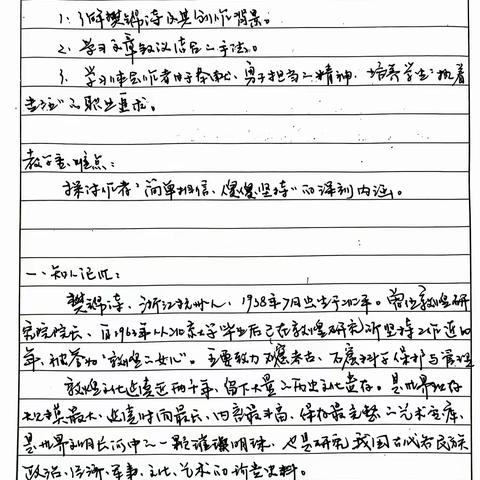 1、了解樊锦诗及其创作背景。
2、学习文章叙议结合的手法。
3、学习体会作者甘于奉献、勇于担当的精神，培养学生“执着
坚定”的职业追求。
教学重、难点：
探讨作者“简单相信、傻傻坚持”的深刻内涵。
一、知人论世：
樊锦诗，浙江杭州人，1938年7月出生于北京。曾任敦煌研
究院院长，自1963年从北京大学毕业后已在敦煌研究所坚持工作近
年，被誉为“敦煌的女儿”。主要致力石窟考古、石窟科学保护与管理
敦煌文化延续近两千年，留下大量的历史文化遗存。是世界现存
规模最大、延续时间最长、内容最丰富、保存最完整的艺术宝库，
是世界文明长河中的一颗璀璨明珠，也是研究我国古代各民族
政治、经济、军事、文化、艺术的珍贵史料。